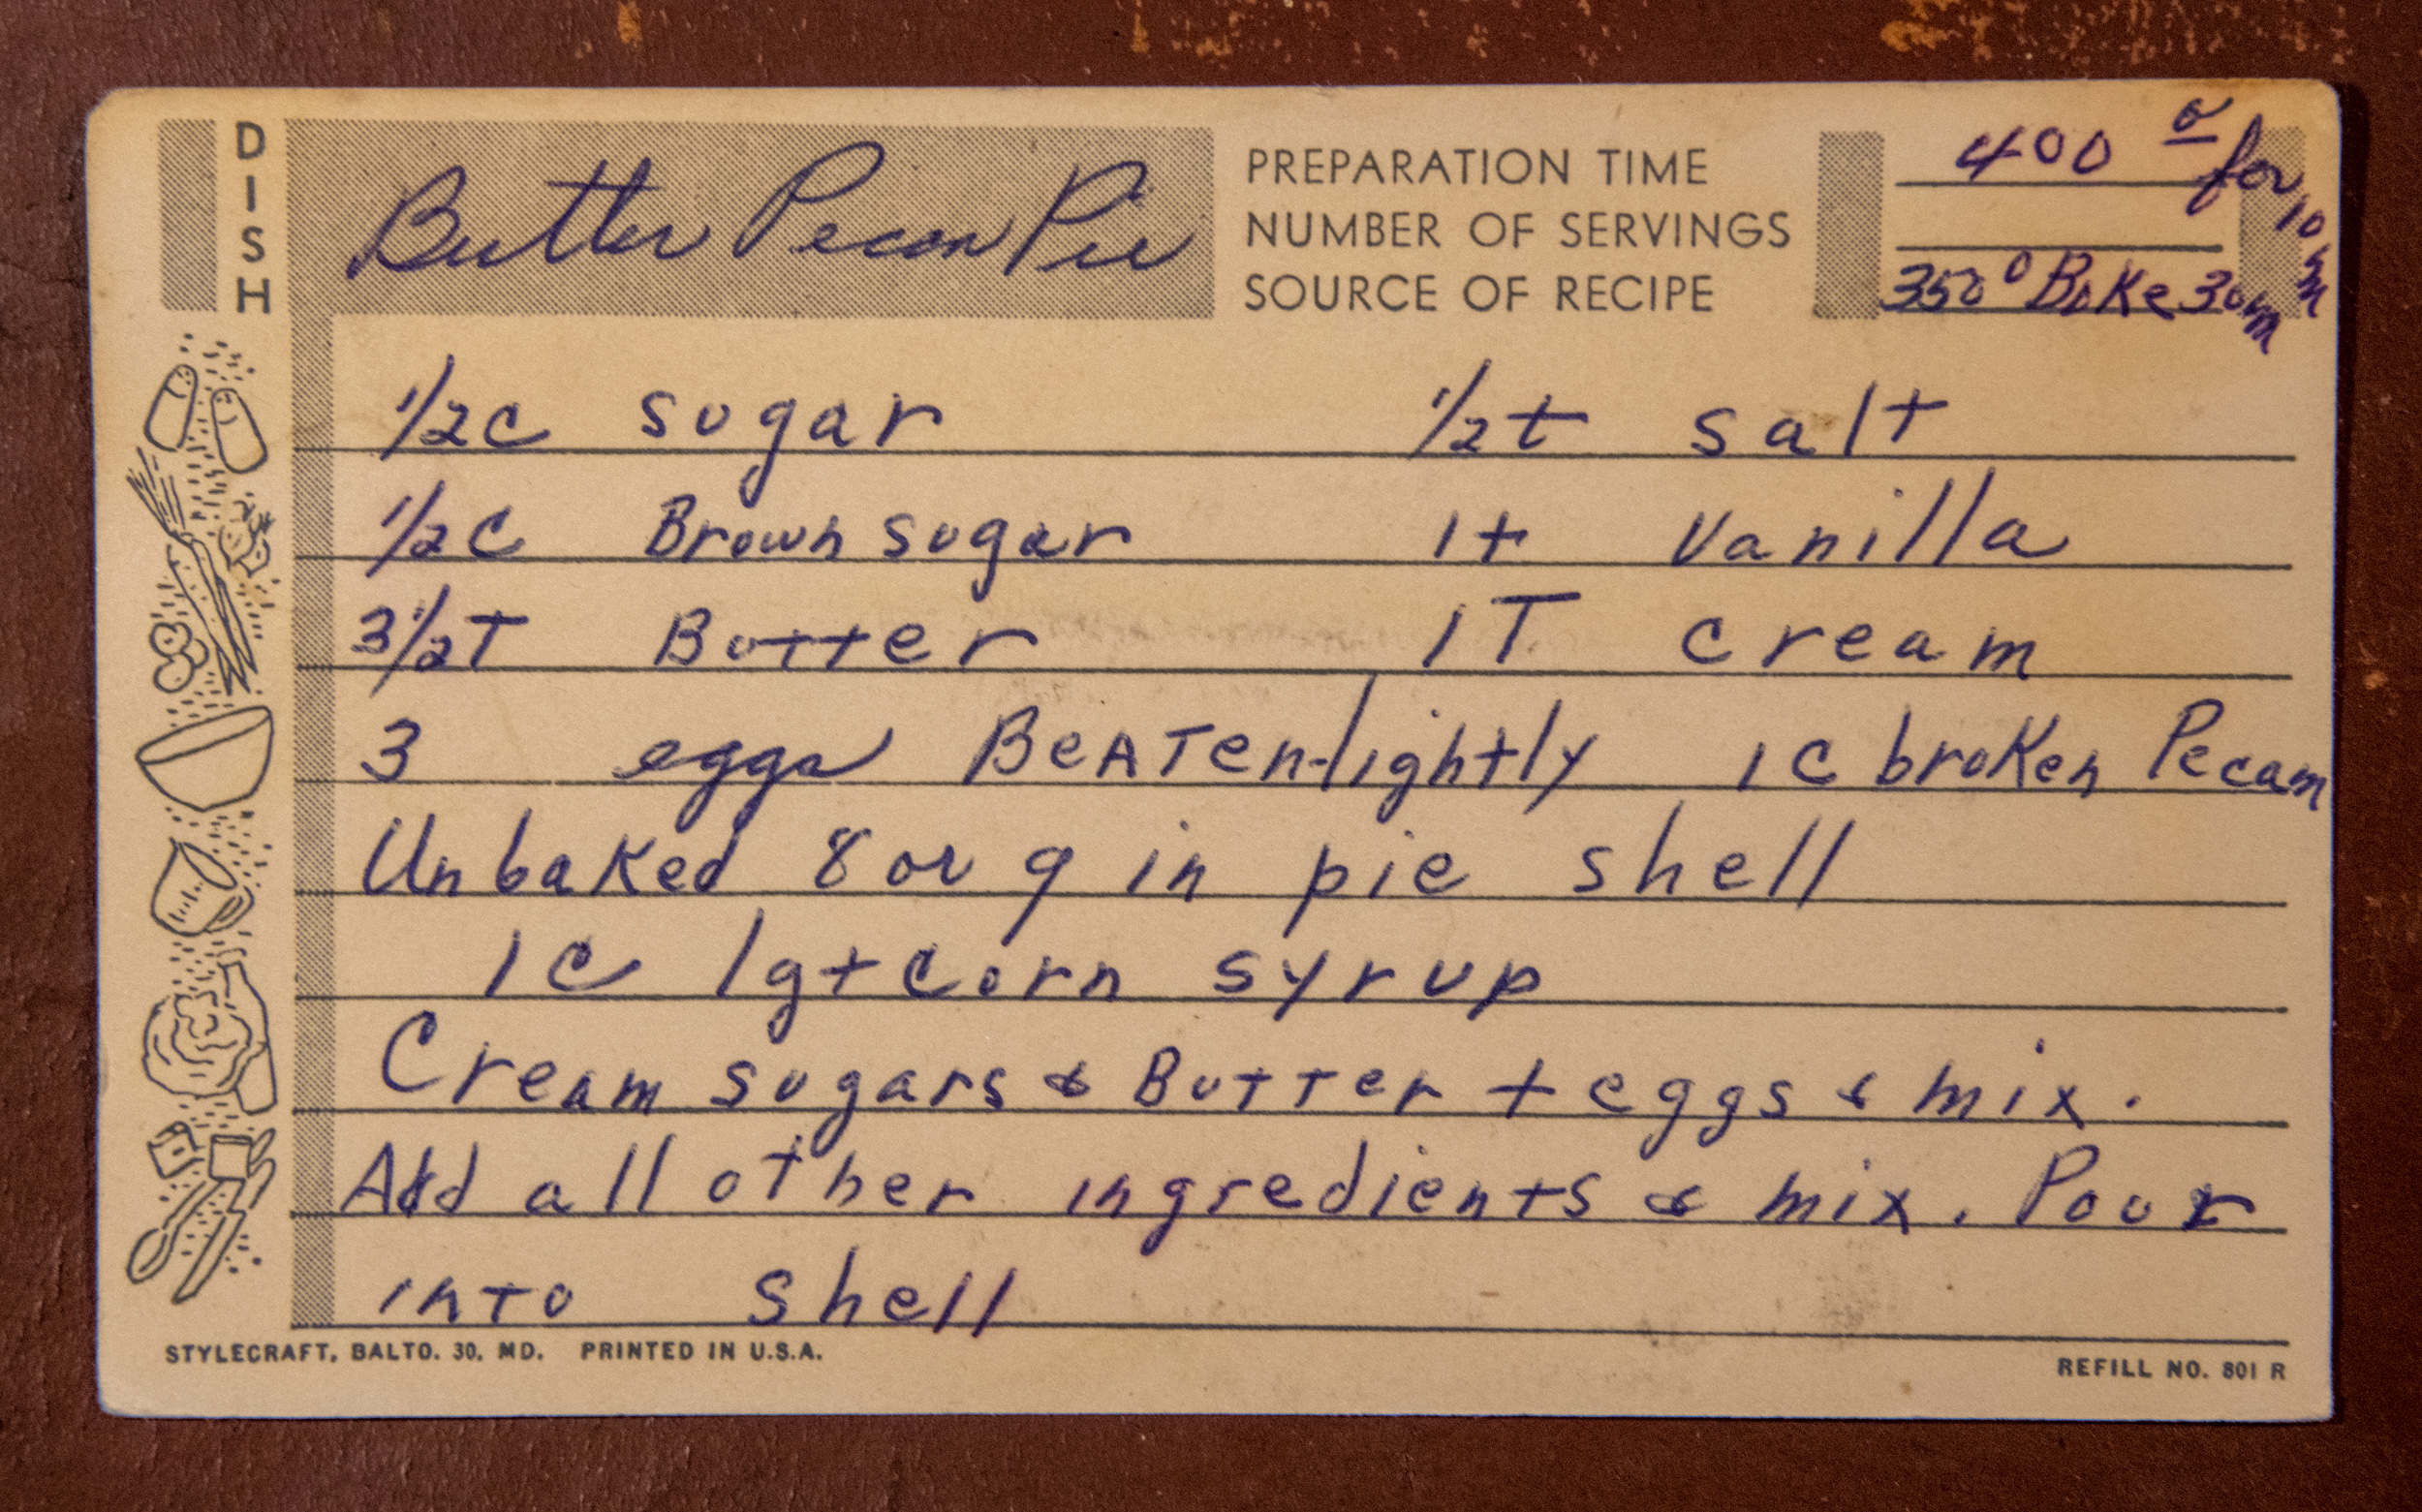 DISH
Butter Pecan Pie
PREPARATION TIME 400° for 10 m
NUMBER OF SERVINGS
SOURCE OF RECIPE 350° Bake 30 m
1/2 c sugar 1/2 t salt
1/2 c Brown sugar 1 t Vanilla
3 1/2 T Butter 1 T cream
3 eggs Beaten-lightly 1 c broken Pecans
Unbaked 8 or 9 in pie shell
1 c lgt corn syrup
Cream sugars & Butter + eggs & mix.
Add all other ingredients & mix. Pour
into shell
STYLECRAFT, BALTO. 30, MD. PRINTED IN U.S.A.
REFILL NO. 801 R